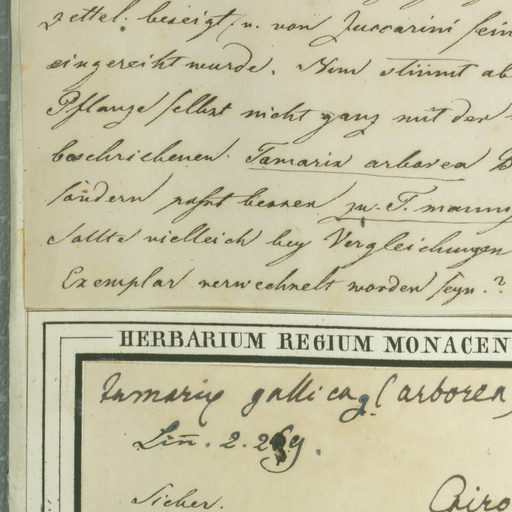 zettel beseigt u. von Zuccarini sein
eingereiht wurde. Nun stimmt ab
Pflanze selbst nicht ganz mit der
beschriebenen Tamarix arborea
sondern passt besser zu T. mann
Sollte vielleich bey Vergleichungen
Exemplar verwechselt worden seyn?
HERBARIUM REGIUM MONACEN
Tamarix gallica (arborea)
Lin. 2. 269.
Sieber.
Cairo